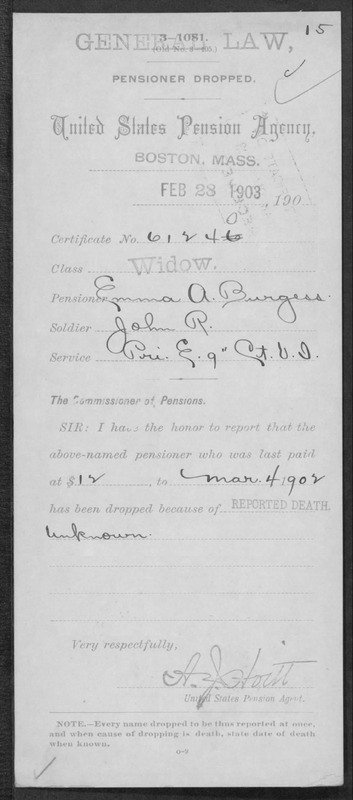 15
GENERAL LAW,
3—1081.
(Old No. 3—403.)
PENSIONER DROPPED.
United States Pension Agency,
BOSTON, MASS.
FEB 28 1903, 190
0
Certificate No. 61246
Class Widow.
Pensioner Emma A. Burgess.
Soldier John R.
Service Pri. E. 9" Ct. V. I.
The Commissioner of Pensions.
SIR: I have the honor to report that the
above-named pensioner who was last paid
at $12, to Mar. 4, 1902
has been dropped because of REPORTED DEATH.
Unknown.
Very respectfully,
A. J. Hoitt
United States Pension Agent.
NOTE.—Every name dropped to be thus reported at once,
and when cause of dropping is death, state date of death
when known.